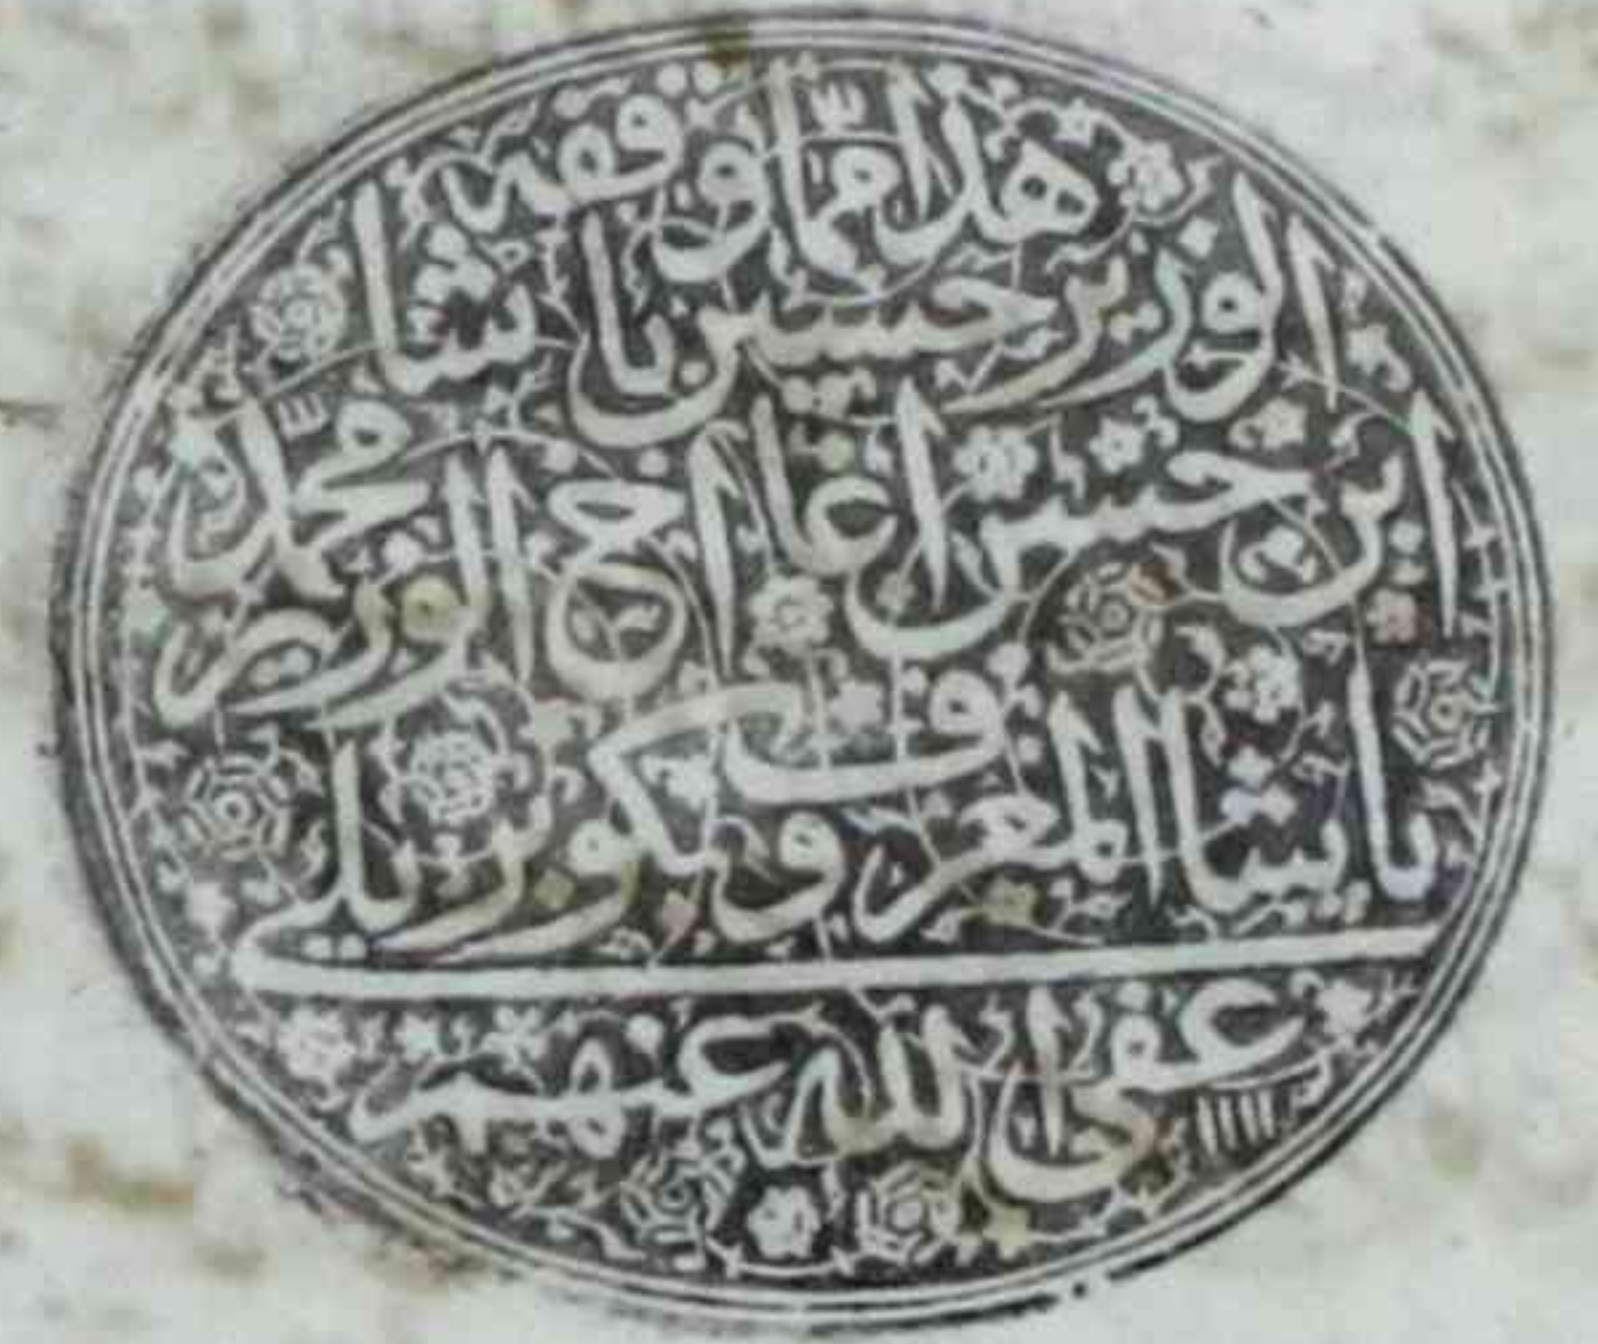 هذا ممّا وقفه
الوزير حسين باشا
ابن حسن اغا اخ الوزير محمّد
باشا المعروف بكوپريلي
عفى الله عنهم